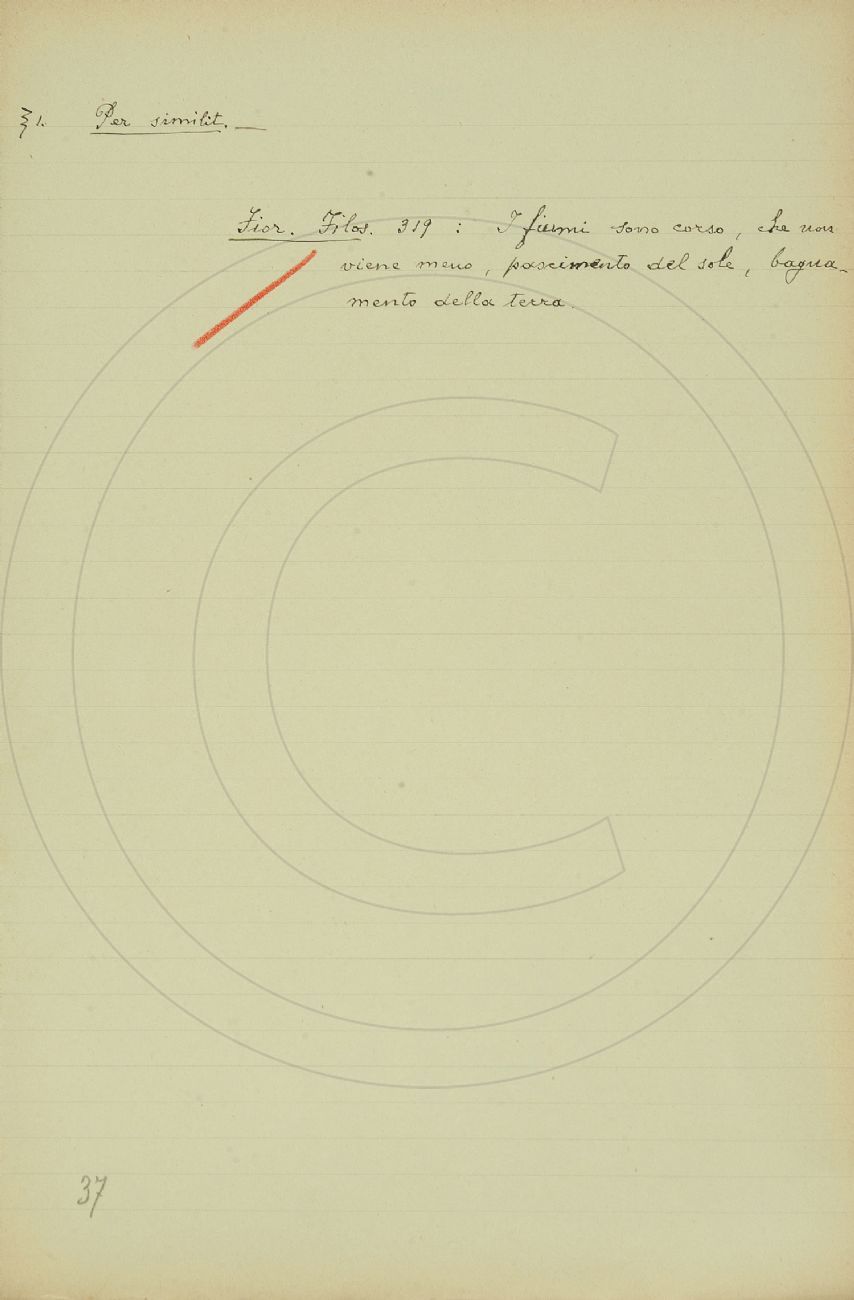 § 1. Per similit. —
Fior. Filos. 319 : I fiumi sono corso, che non
viene meno, pascimento del sole, bagna-
mento della terra.
37